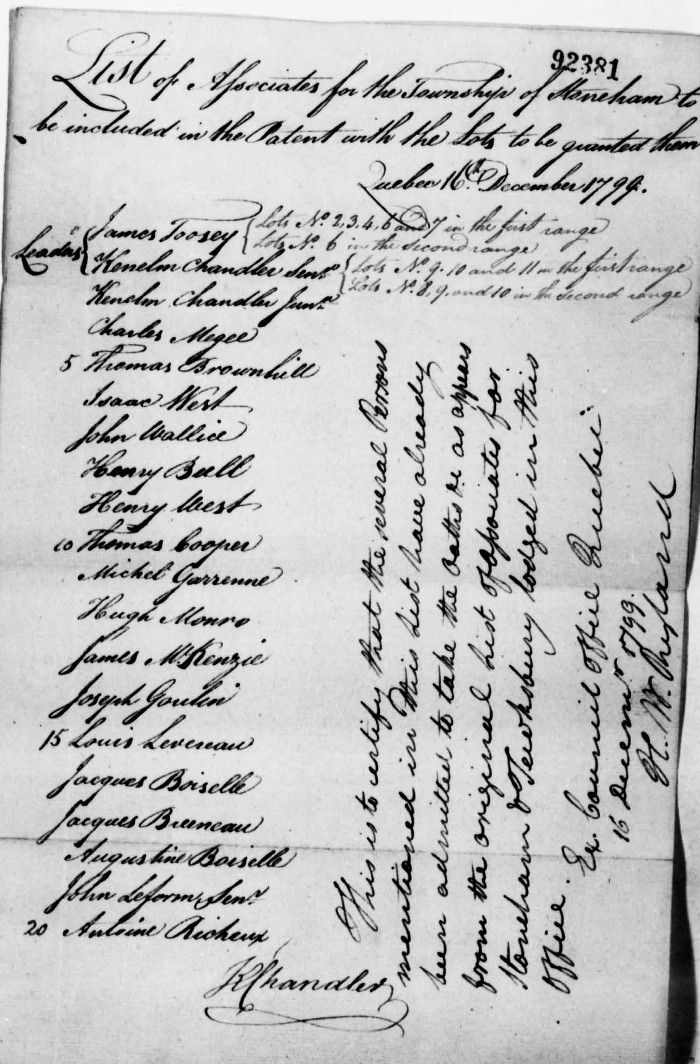 92381
List of Associates for the Township of Stoneham to
be included in the Patent with the Lots to be granted them
Quebec 16th December 1799.
Leaders
James Toosey
Lots No. 2, 3, 4, 6 and 7 in the first range
Lots No. 6 in the second range
Kenelm Chandler Senr.
Lots No. 9. 10 and 11 in the first range
Lots No. 8, 9, and 10 in the second range
Kenelm Chandler Junr.
Charles Megee
5 Thomas Brownhill
Isaac West
John Wallice
Henry Bull
Henry West
10 Thomas Cooper
Michel Garrenne
Hugh Monro
James McKenzie
Joseph Goulin
15 Louis Leveneau
Jacques Boiselle
Jacques Bruneau
Augustine Boiselle
John Leform Senr.
20 Antoine Richeux
KChandler
This is to certify that the several Persons
mentioned in this List have already
been admitted to take the Oaths &c. as appears
from the original List of Associates for
Stoneham & Tewksbury lodged in this
Office.
Ex. Council Office Quebec
16 Decemr 1799.
H. W. Ryland